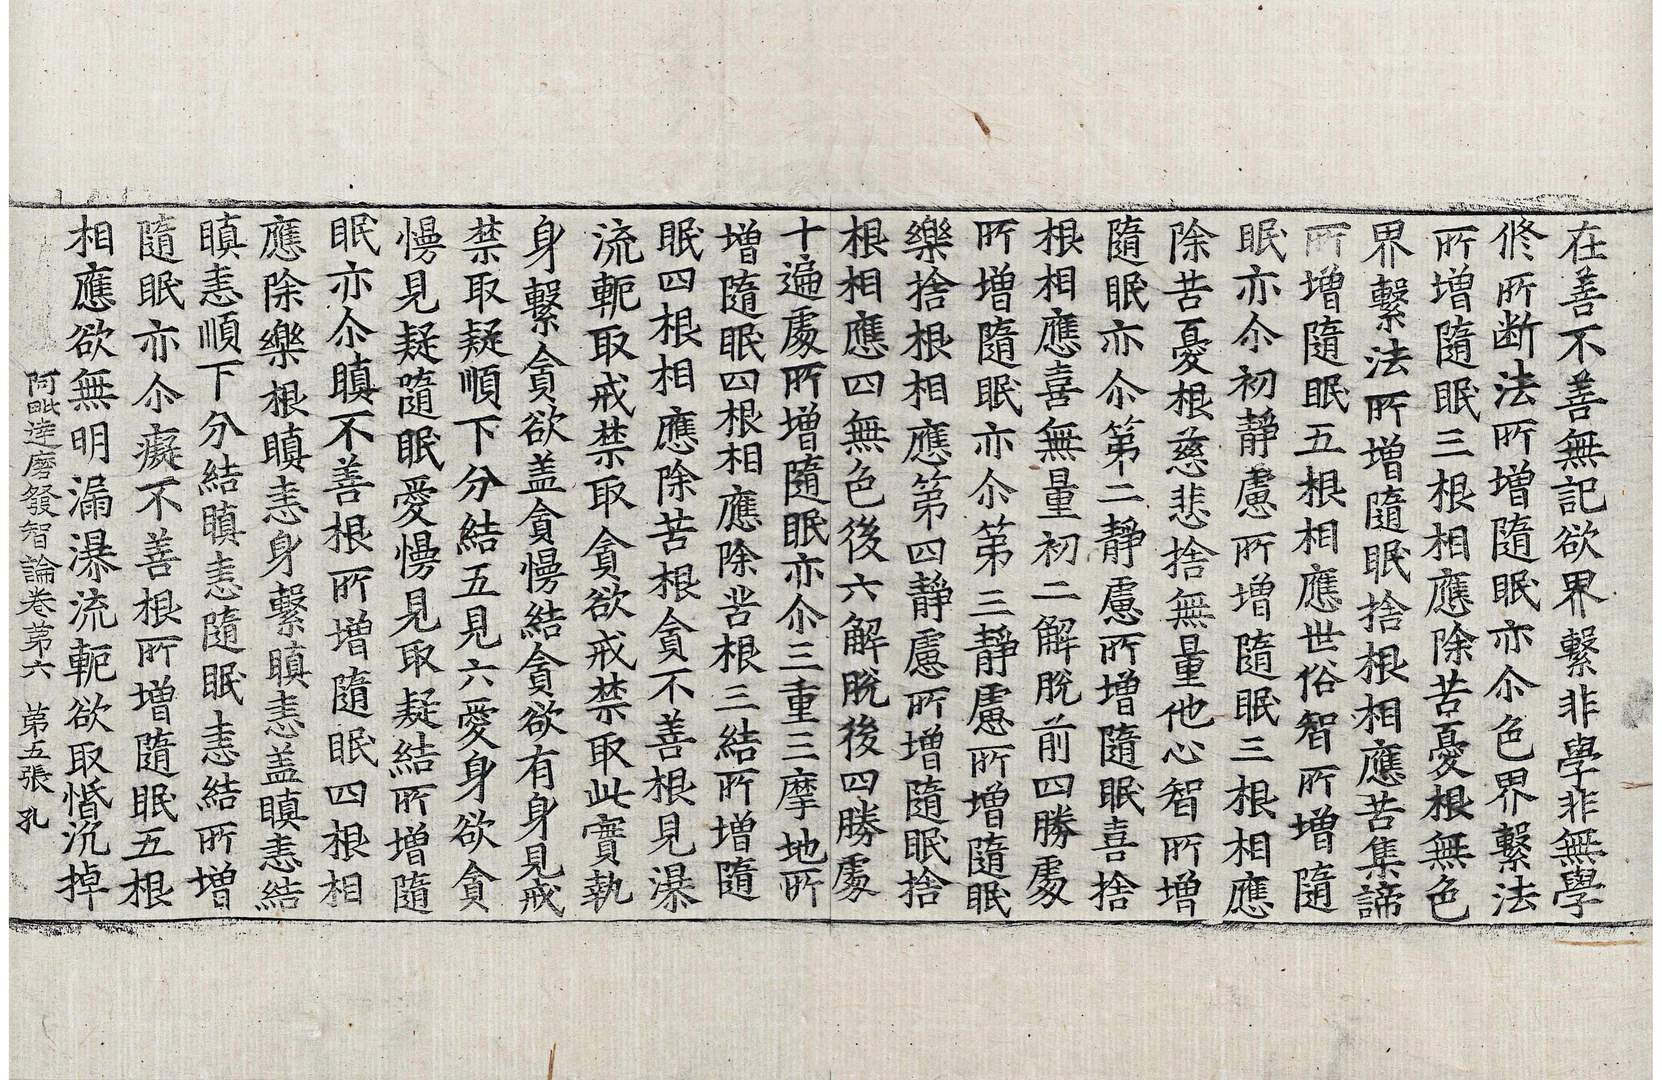 在善不善無記欲界繫非學非無學
修所断法所增隨眠亦尒色界繫法
所增隨眠三根相應除苦憂根無色
界繫法所增隨眠捨根相應苦集諦
所增隨眠五根相應世俗智所增隨
眠亦尒初靜慮所增隨眠三根相應
除苦憂根慈悲捨無量他心智所增
隨眠亦尒第二靜慮所增隨眠喜捨
根相應喜無量初二解脫前四勝處
所增隨眠亦尒第三靜慮所增隨眠
樂捨根相應第四靜慮所增隨眠捨
根相應四無色後六解脫後四勝處
十遍處所增隨眠亦尒三重三摩地所
增隨眠四根相應除苦根三結所增隨
眠四根相應除苦根貪不善根見瀑
流軛取戒禁取貪欲戒禁取此實執
身繫貪欲盖貪慢結貪欲有身見戒
禁取疑順下分結五見六愛身欲貪
慢見疑隨眠愛慢見取疑結所增隨
眠亦尒瞋不善根所增隨眠四根相
應除樂根瞋恚身繫瞋恚盖瞋恚結
瞋恚順下分結瞋恚隨眠恚結所增
隨眠亦尒癡不善根所增隨眠五根
相應欲無明漏瀑流軛欲取惛沉掉
阿毗達磨發智論卷第六 第五張 孔